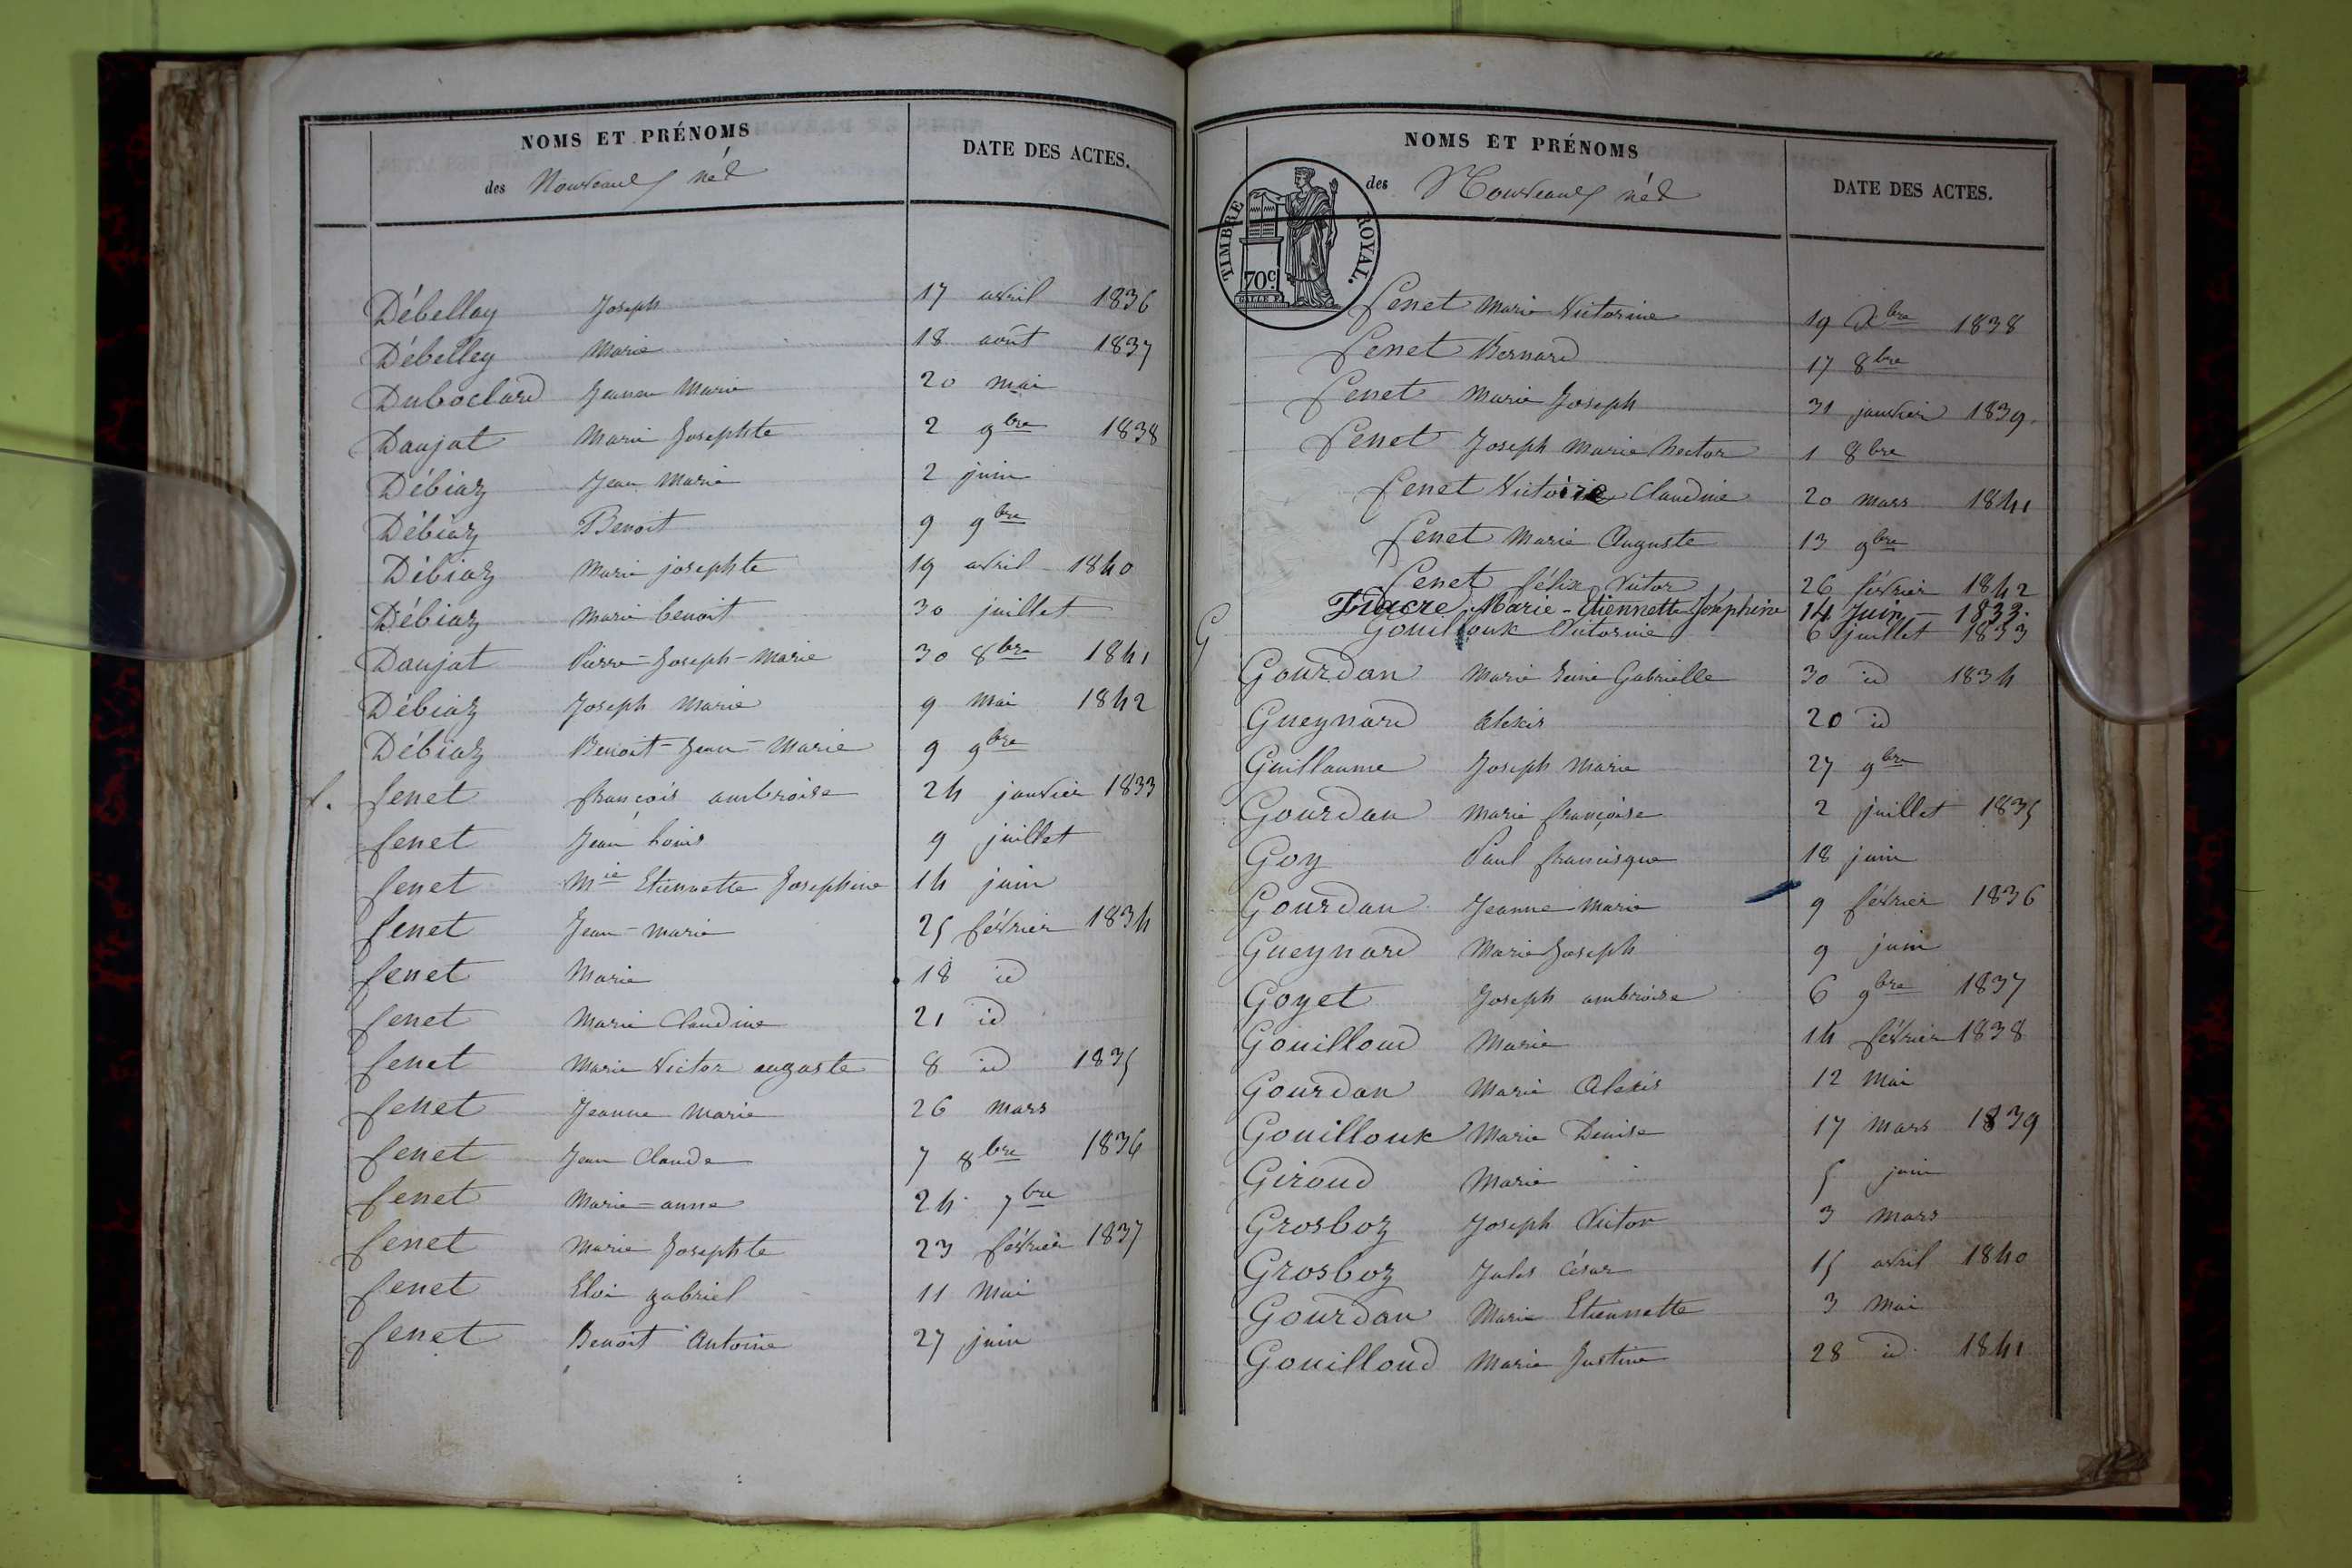 NOMS ET PRÉNOMS
des Nouveaux né
DATE DES ACTES.
Débellay Joseph 17 avril 1836
Débelley Marie 18 août 1837
Duboclard Jeanne Marie 20 mai
Daujat Marie Josephte 2 9bre 1838
Débiaz Jean Marie 2 juin
Débiaz Benoit 9 9bre
Débiaz Marie josephte 19 avril 1840
Débiaz Marie benoit 30 juillet
Daujat Pierre-Joseph-Marie 30 8bre 1841
Débiaz Joseph Marie 9 mai 1842
Débiaz Benoit-Jean-Marie 9 9bre
f. fenet françois ambroise 24 janvier 1833
fenet Jean Louis 9 juillet
fenet Mie Etiennette Josephine 14 juin
fenet Jean-marie 25 février 1834
fenet Marie 18 id
fenet Marie Claudine 21 id
fenet Marie Victor auguste 8 id 1835
fenet Jeanne Marie 26 mars
fenet Jean Claude 7 8bre 1836
fenet Marie-anne 24 7bre
fenet Marie Josephte 23 février 1837
fenet Eloi gabriel 11 Mai
fenet Benoit Antoine 27 juin
NOMS ET PRÉNOMS
des Nouveaux né
DATE DES ACTES.
TIMBRE ROYAL.
70c
fenet Marie Victorine 19 Xbre 1838
fenet Bernard 17 8bre
fenet Marie Joseph 31 janvier 1839
fenet Joseph Marie hector 1 8bre
fenet Victoire Claudine 20 mars 1841
fenet Marie Auguste 13 9bre
fenet félix Victor 26 février 1842
Fiacre Marie-Etiennette Joséphine 14 Juin 1833.
G Gouilloux Victorine 6 juillet 1833
Gourdan Marie Reine Gabrielle 30 id 1834
Gueynard Alexis 20 id
Guillaume Joseph Marie 27 9bre
Gourdan Marie françoise 2 juillet 1835
Goy Paul francisque 18 juin
Gourdan Jeanne Marie 9 février 1836
Gueynard Marie Joseph 9 juin
Goyet Joseph ambroise 6 9bre 1837
Gouilloud Marie 14 février 1838
Gourdan Marie Alexis 12 Mai
Gouilloux Marie Denise 17 mars 1839
Giroud Marie 5 juin
Grosboz Joseph Victor 3 mars
Grosboz Jules César 15 avril 1840
Gourdan Marie Etiennette 3 Mai
Gouilloud Marie Justine 28 id 1841